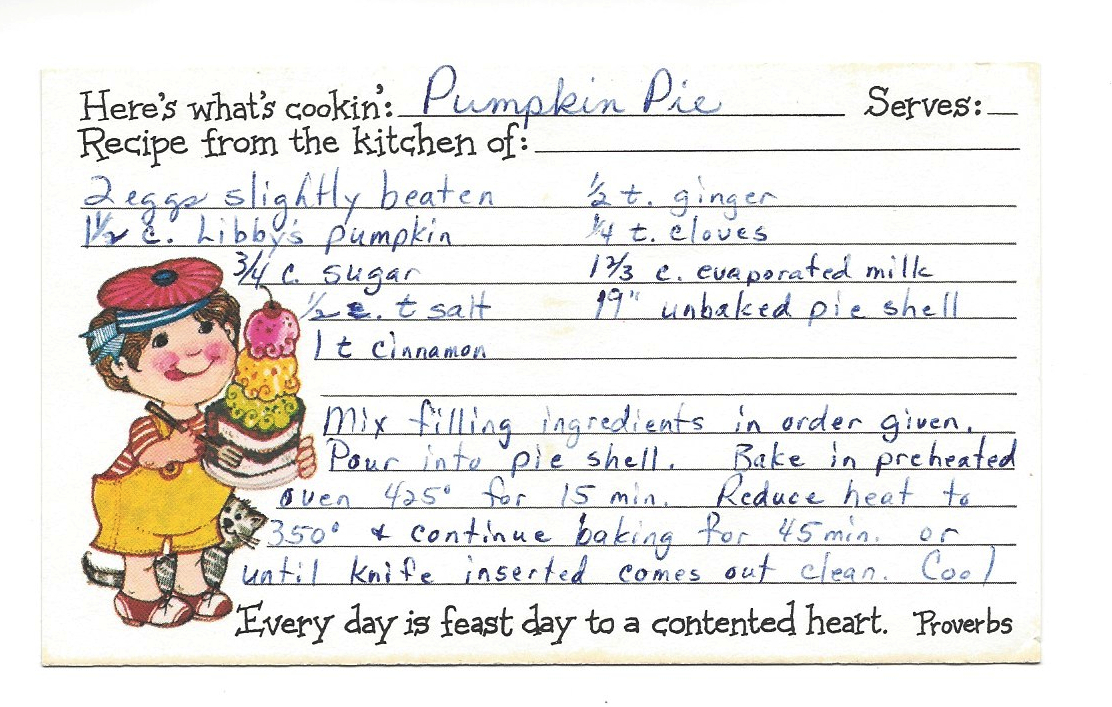 Here's what's cookin': Pumpkin Pie Serves:
Recipe from the kitchen of:
2 eggs slightly beaten ½ t. ginger
1½ c. Libby's pumpkin ¼ t. cloves
3/4 c. sugar 1 2/3 c. evaporated milk
½ t salt 1 9" unbaked pie shell
1 t cinnamon
Mix filling ingredients in order given.
Pour into pie shell. Bake in preheated
oven 425° for 15 min. Reduce heat to
350° & continue baking for 45 min. or
until knife inserted comes out clean. Cool
Every day is feast day to a contented heart. Proverbs